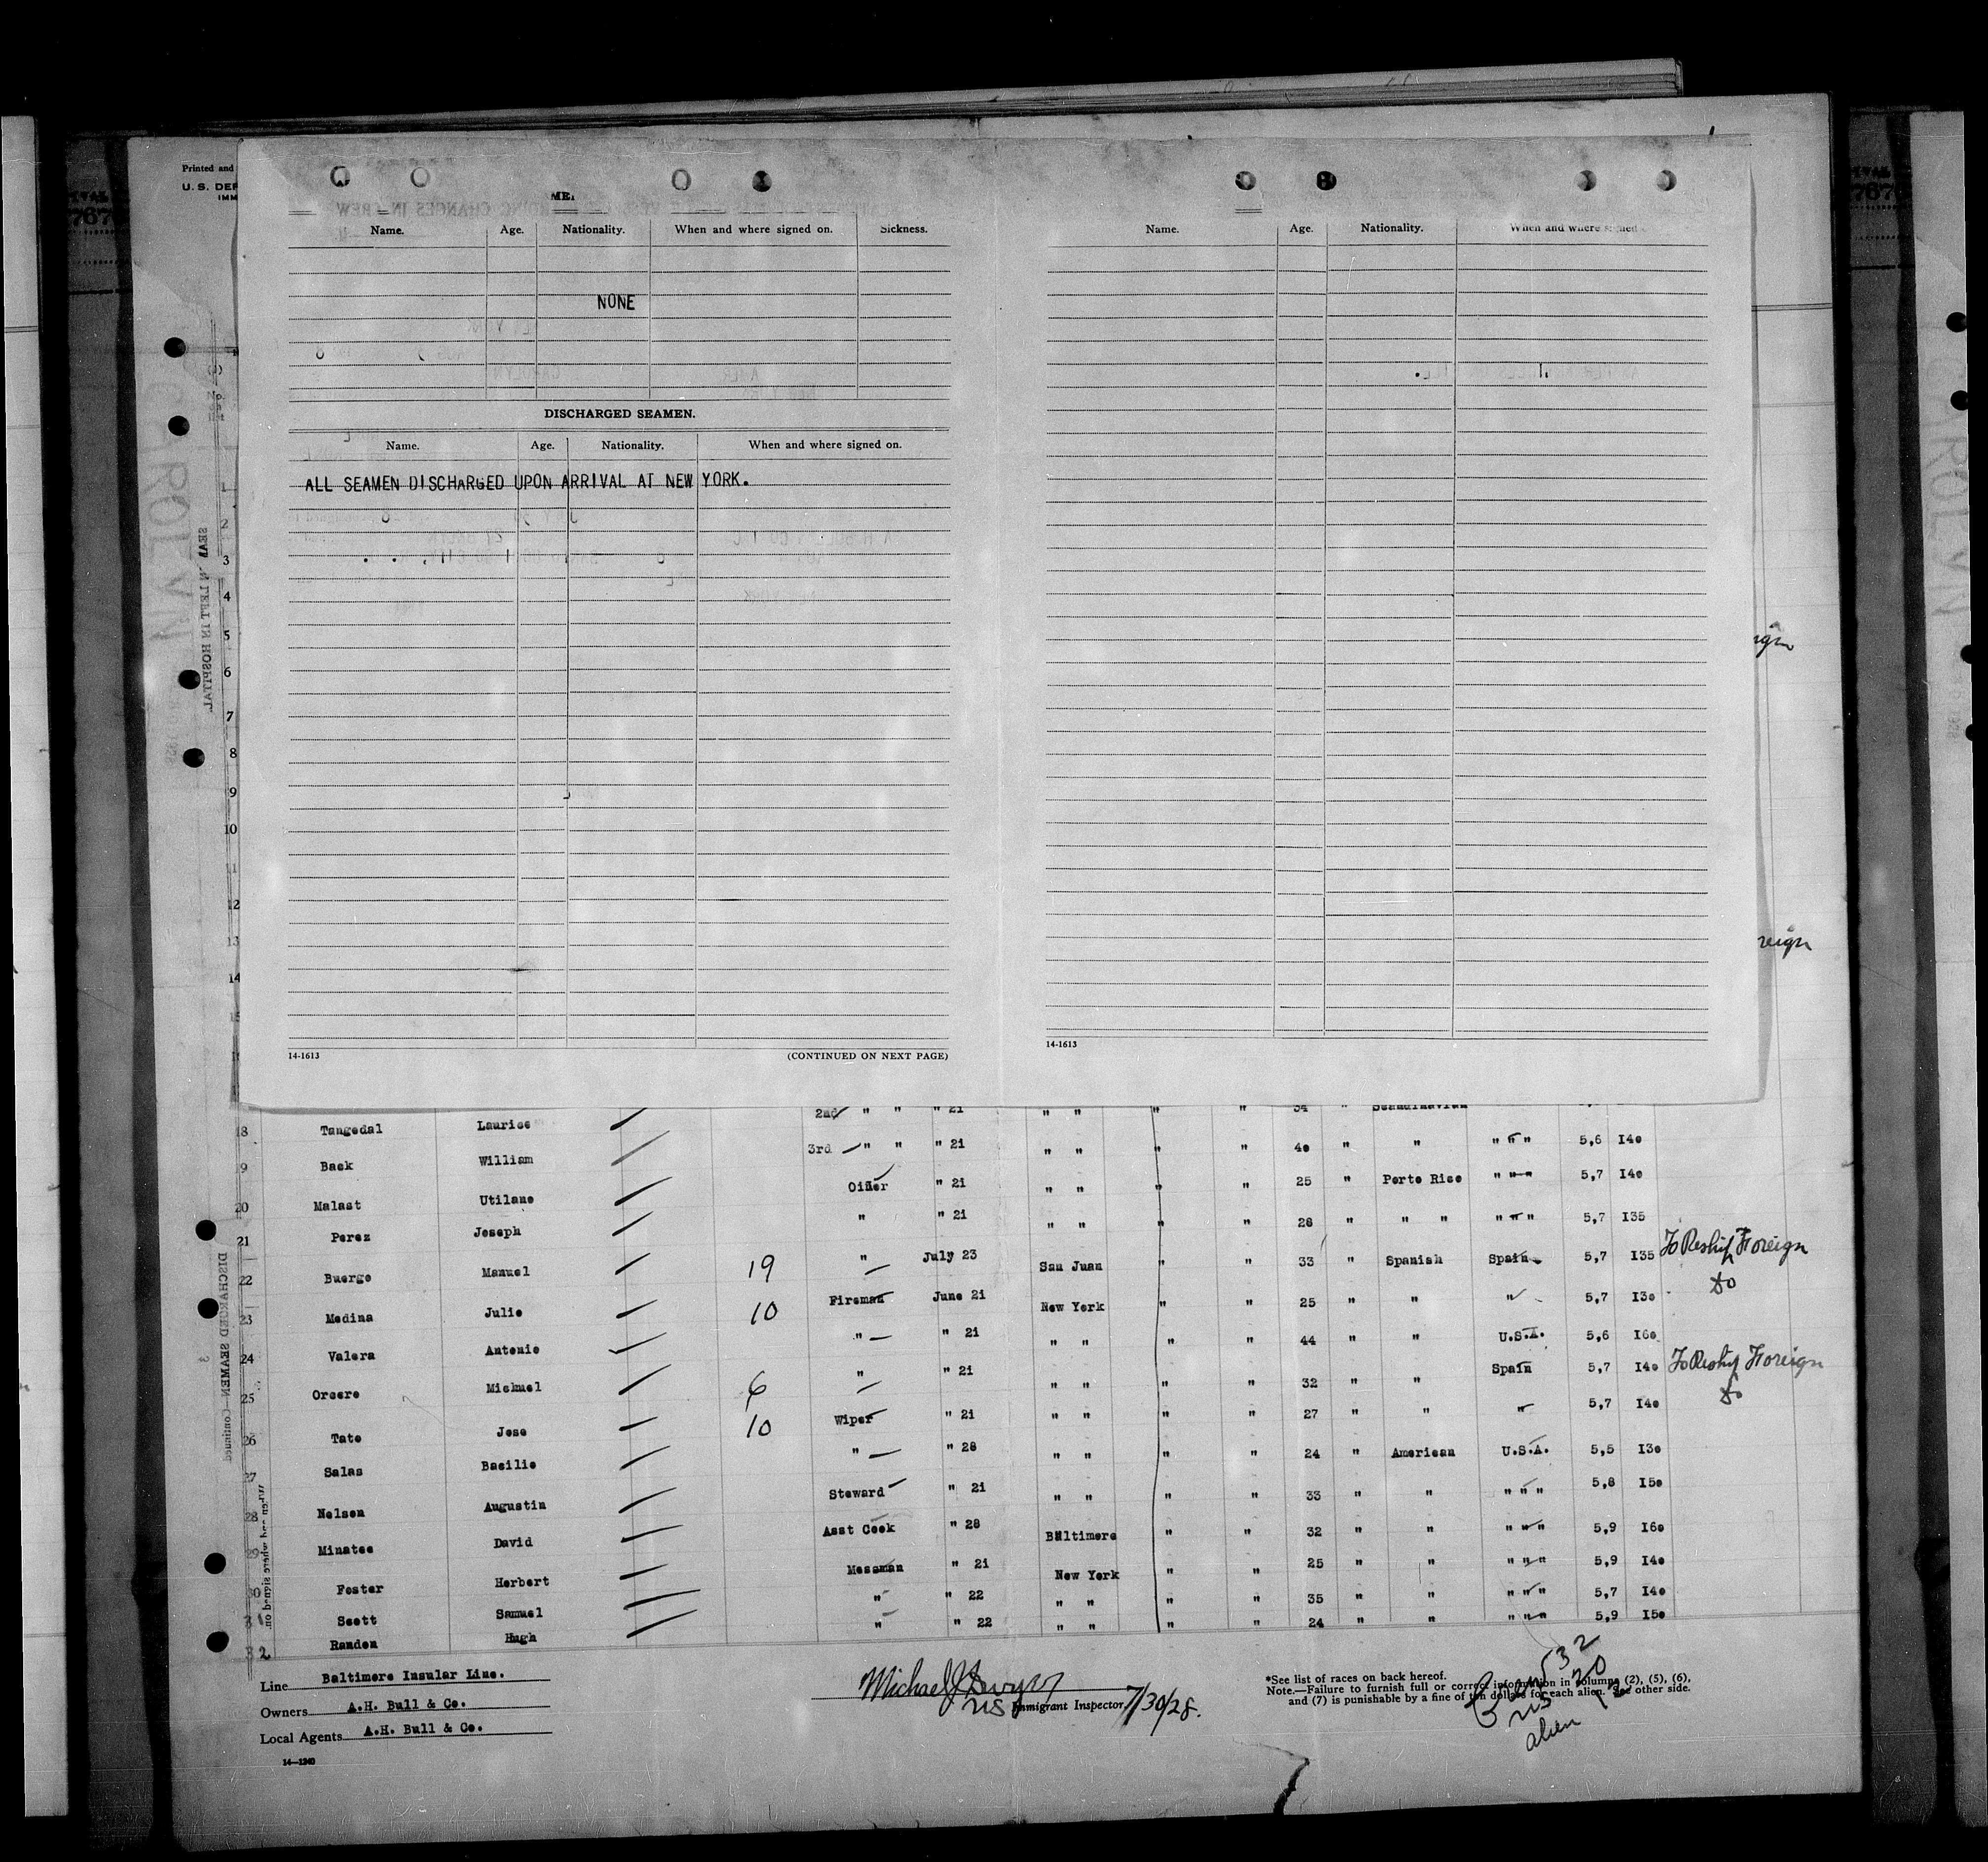 Printed and
U. S. DEP
IMM
Name. Age. Nationality. When and where signed on. Sickness.
NONE
DISCHARGED SEAMEN.
Name. Age. Nationality. When and where signed on.
ALL SEAMEN DISCHARGED UPON ARRIVAL AT NEW YORK.
14-1613 (CONTINUED ON NEXT PAGE)
Name. Age. Nationality. When and where signed
14-1613
1
2
3
4
5
6
7
8
9
10
11
12
13
14
reign
2nd " " " 21 " " " " 34 " Scandinavian
18 Tangedal Laurice 3rd " " " 21 " " " " 40 " " " " " 5,6 I40
19 Back William Oiler " 21 " " " " 25 " Porto Rico " " " 5,7 I40
20 Malast Utilane " " 21 " " " " 28 " " " " " " 5,7 I35
21 Perez Joseph " July 23 San Juan " " 33 " Spanish Spain 5,7 I35 To Reship Foreign
22 Buergo Manuel 19 Fireman June 21 New York " " 25 " " " 5,7 I30 do
23 Medina Julio 10 " " 21 " " " " 44 " " U.S.A. 5,6 I60
24 Valera Antonio " " 21 " " " " 32 " " Spain 5,7 I40 To Reship Foreign
25 Orcero Michuel 6 Wiper " 21 " " " " 27 " " " 5,7 I40 do
26 Tato Jose 10 " " 28 " " " " 24 " American U.S.A. 5,5 I30
27 Salas Basilio Steward " 21 " " " " 33 " " " " " 5,8 I50
28 Nelson Augustin Asst Cook " 28 Baltimore " " 32 " " " " " 5,9 I60
29 Minatee David Messman " 21 New York " " 25 " " " " " 5,9 I40
30 Foster Herbert " " 22 " " " " 35 " " " " " 5,7 I40
31 Scott Samuel " " 22 " " " " 24 " " " " " 5,9 I50
32 Randon Hugh
Line Baltimore Insular Line.
Owners A.H. Bull & Co.
Local Agents A.H. Bull & Co.
14—1240
Michael J Dwyer
US Immigrant Inspector 7/30/28.
*See list of races on back hereof.
Note.—Failure to furnish full or correct information in columns (2), (5), (6),
and (7) is punishable by a fine of ten dollars for each alien. See other side.
Crew 32
US 20
alien 12
SEAMEN LEFT IN HOSPITAL
DISCHARGED SEAMEN—Continued